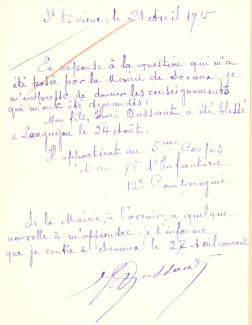 St Brieuc, le 21 Avril 1915
En réponse à la question qui m'a
été posée par la Mairie de Sceaux, je
m'empresse de donner les renseignements
qui m'ont été demandés:
Mon fils, Henri Bussaut, a été blessé
à Longuyon le 24 Août.
Il appartient au 5ème Corps
et au 76 d'Infanterie
12e Compagnie
Si la Mairie, à l'avenir, a quelque
nouvelle à m'apprendre, je l'informe
que je rentre à Sceaux le 27 courant